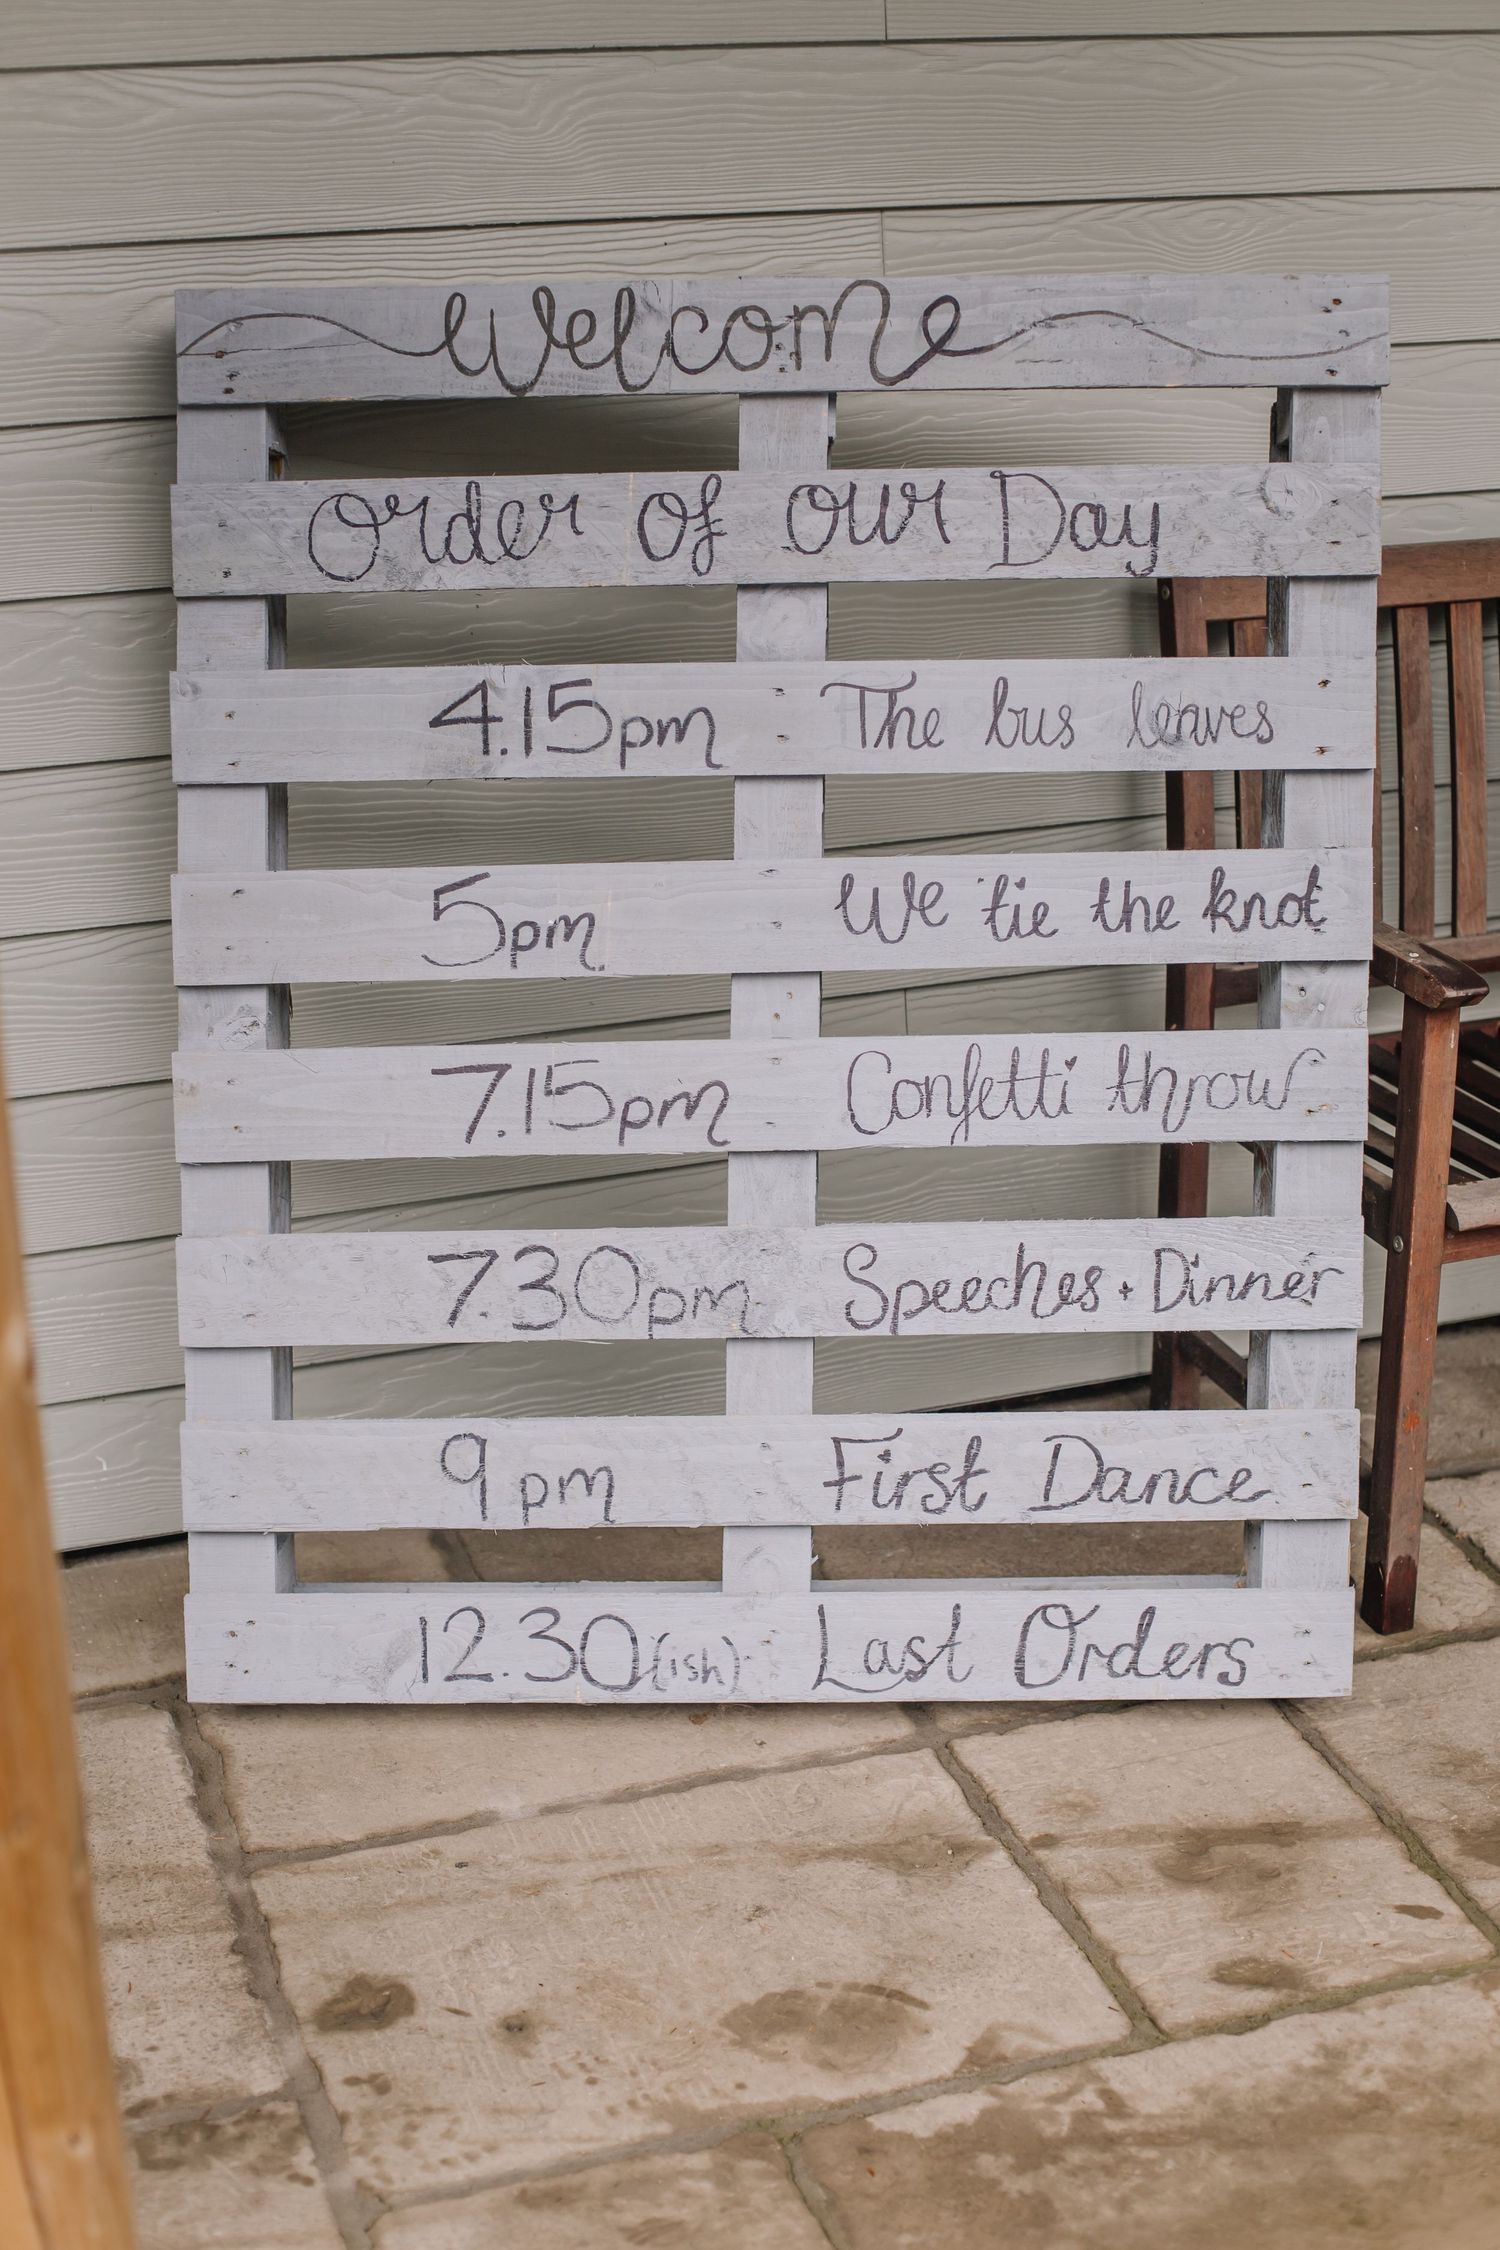 Welcome
Order of our Day
4.15pm The bus leaves
5pm We tie the knot
7.15pm Confetti throw
7.30pm Speeches + Dinner
9pm First Dance
12.30(ish) Last Orders